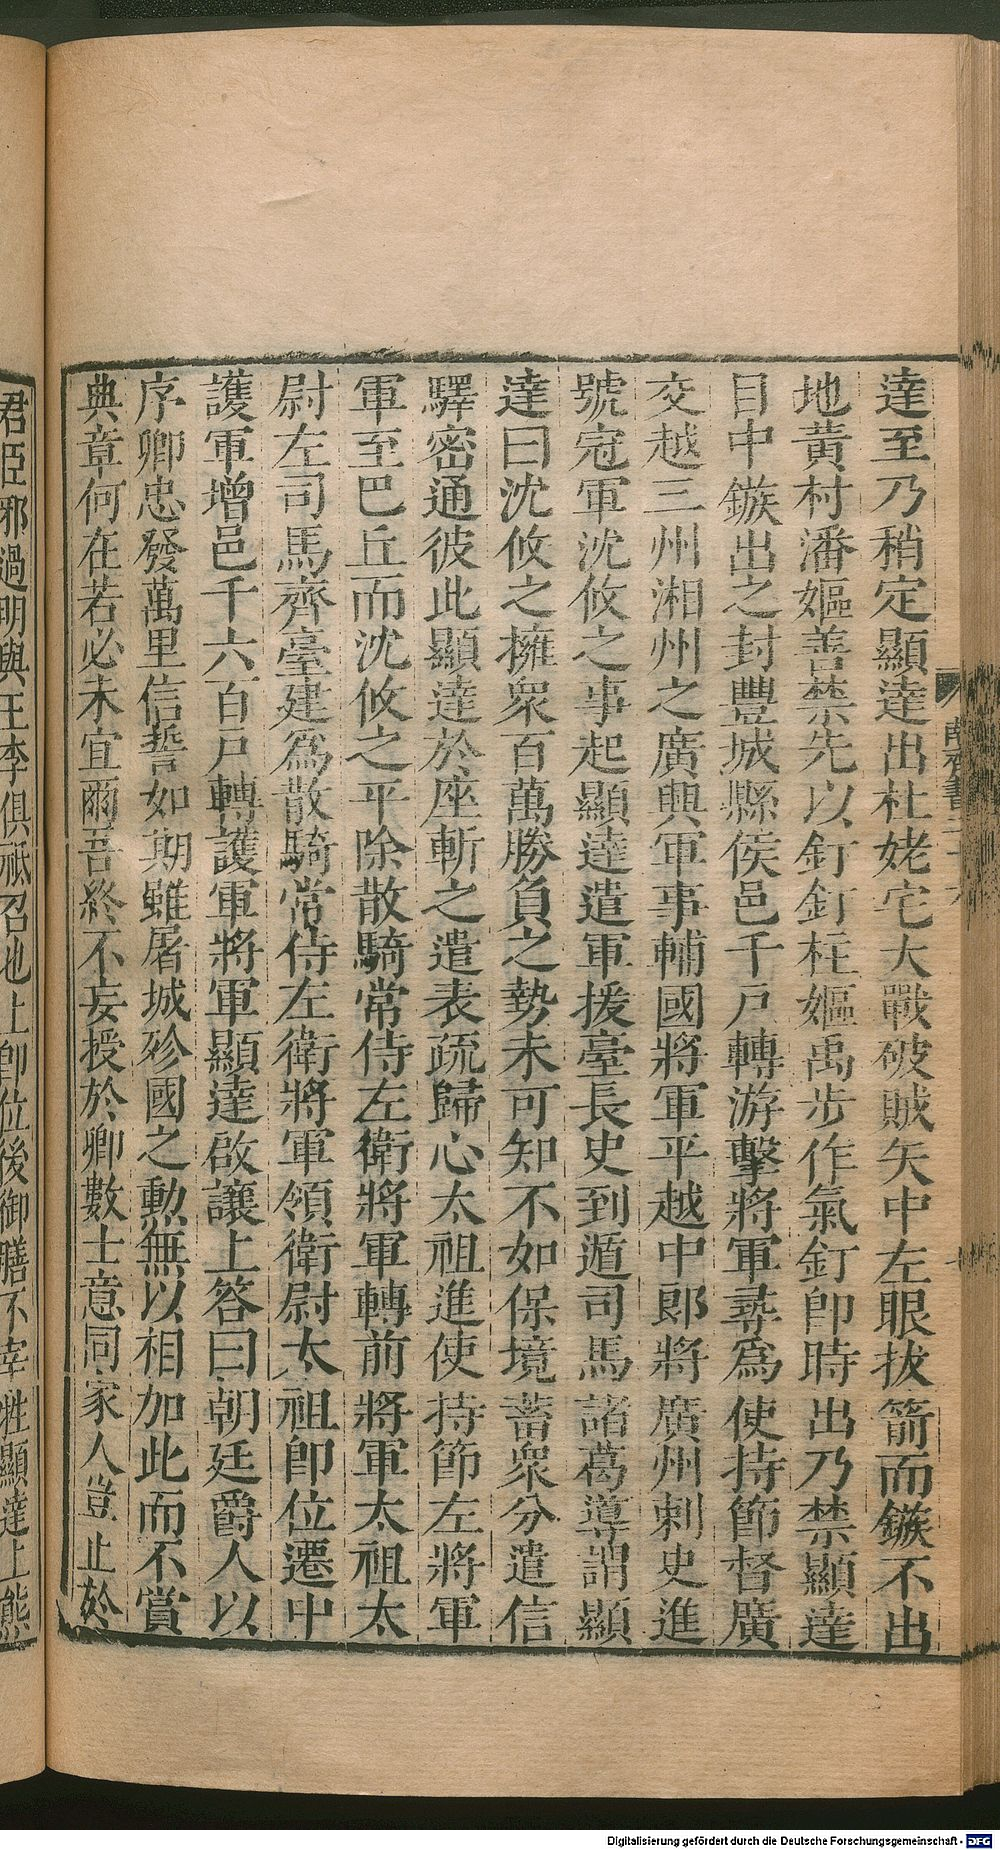 達至乃稍定顯達出杜姥宅大戰破賊矢中左眼拔箭而鏃不出
地黃村潘嫗善禁先以釘釘柱嫗禹步作氣釘即時出乃禁顯達
目中鏃出之封豐城縣侯邑千戶轉游擊將軍尋爲使持節督廣
交越三州湘州之廣興軍事輔國將軍平越中郎將廣州刺史進
號冠軍沈攸之事起顯達遣軍援臺長史到遁司馬諸葛導謂顯
達曰沈攸之擁衆百萬勝負之勢未可知不如保境蓄衆分遣信
驛密通彼此顯達於座斬之遣表疏歸心太祖進使持節左將軍
軍至巴丘而沈攸之平除散騎常侍左衛將軍轉前將軍太祖太
尉左司馬齊臺建爲散騎常侍左衛將軍領衛尉太祖即位遷中
護軍增邑千六百戶轉護軍將軍顯達啟讓上答曰朝廷爵人以
序卿忠發萬里信誓如期雖屠城殄國之勲無以相加此而不賞
典章何在若必未宜爾吾終不妄授於卿數士意同家人豈止於
君臣邪過明與王李俱祗召也上即位後御膳不宰牲顯達上熊
南齊書二十六
Digitalisierung gefördert durch die Deutsche Forschungsgemeinschaft - DFG